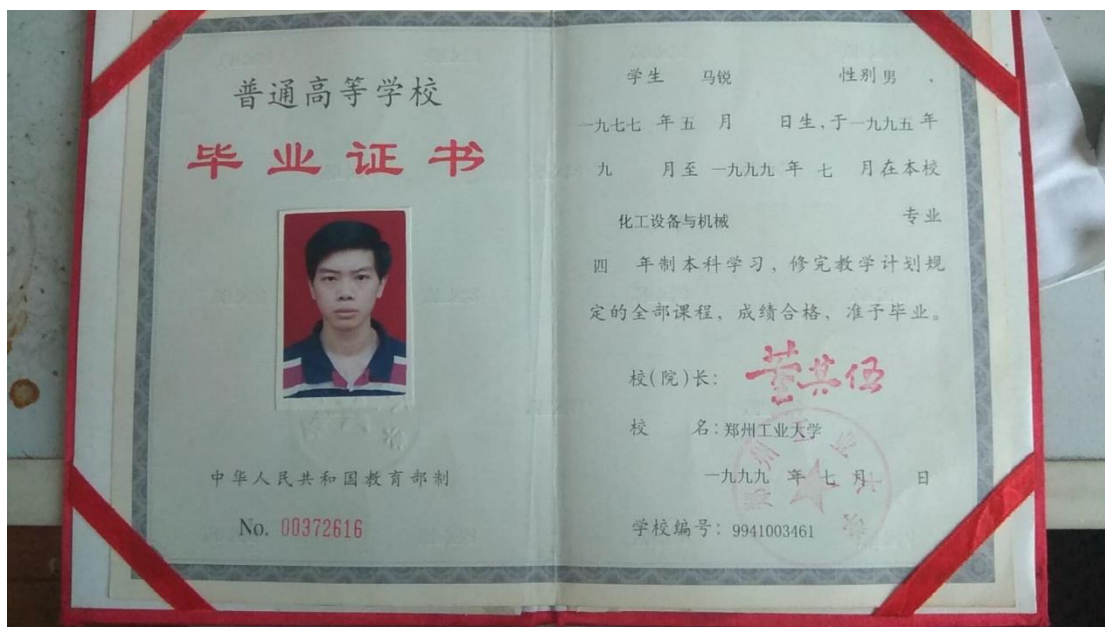 普通高等学校
毕业证书
中华人民共和国教育部制
No. 00372616
学生 马锐 性别 男 、
一九七七 年 五 月 日生,于一九九五 年
九 月至 一九九九 年 七 月在本校
化工设备与机械 专业
四 年制本科学习、修完教学计划规
定的全部课程、成绩合格、准予毕业。
校(院)长: 董其伍
校 名: 郑州工业大学
一九九九 年 七 月 日
学校编号: 9941003461